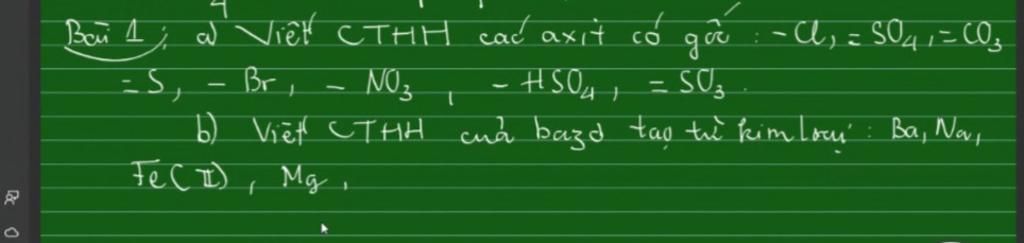 Bài 1: a) Viết CTHH các axit có gốc: -Cl, =SO4, =CO3
=S, -Br, -NO3, -HSO4, =SO3.
b) Viết CTHH của bazơ tạo từ kim loại: Ba, Na,
Fe(II), Mg,